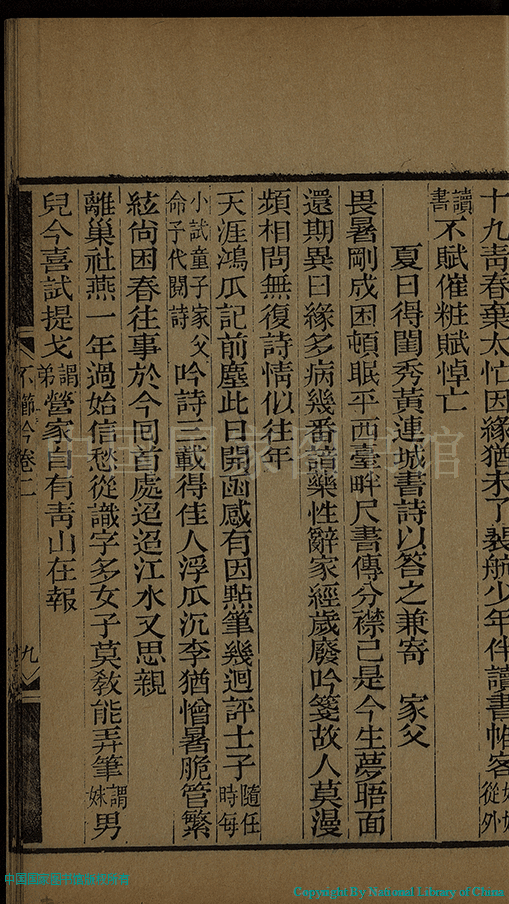 十九靑春棄太忙因緣猶未了裴航少年伴讀書帷客從外
讀書不賦催粧賦悼亡
夏日得閨秀黃連城書詩以答之兼寄　家父
畏暑剛成困頓眠平西臺畔尺書傳分襟已是今生夢晤面
還期異日緣多病幾番諳藥性辭家經歲廢吟箋故人莫漫
頻相問無復詩情似往年
天涯鴻爪記前塵此日開函感有因點筆幾迴評士子隨任時每
小試童子家父命予代閱詩吟詩三載得佳人浮瓜沉李猶憎暑脆管繁
絃尙困春往事於今回首處迢迢江水又思親
離巢社燕一年過始信愁從識字多女子莫敎能弄筆謂妹男
兒今喜試提戈謂弟營家自有靑山在報
卷二
九
中国国家图书馆
Copyright By National Library of China